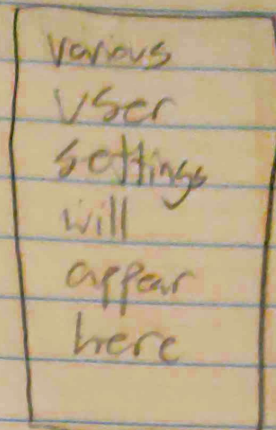 various
User
settings
will
appear
here